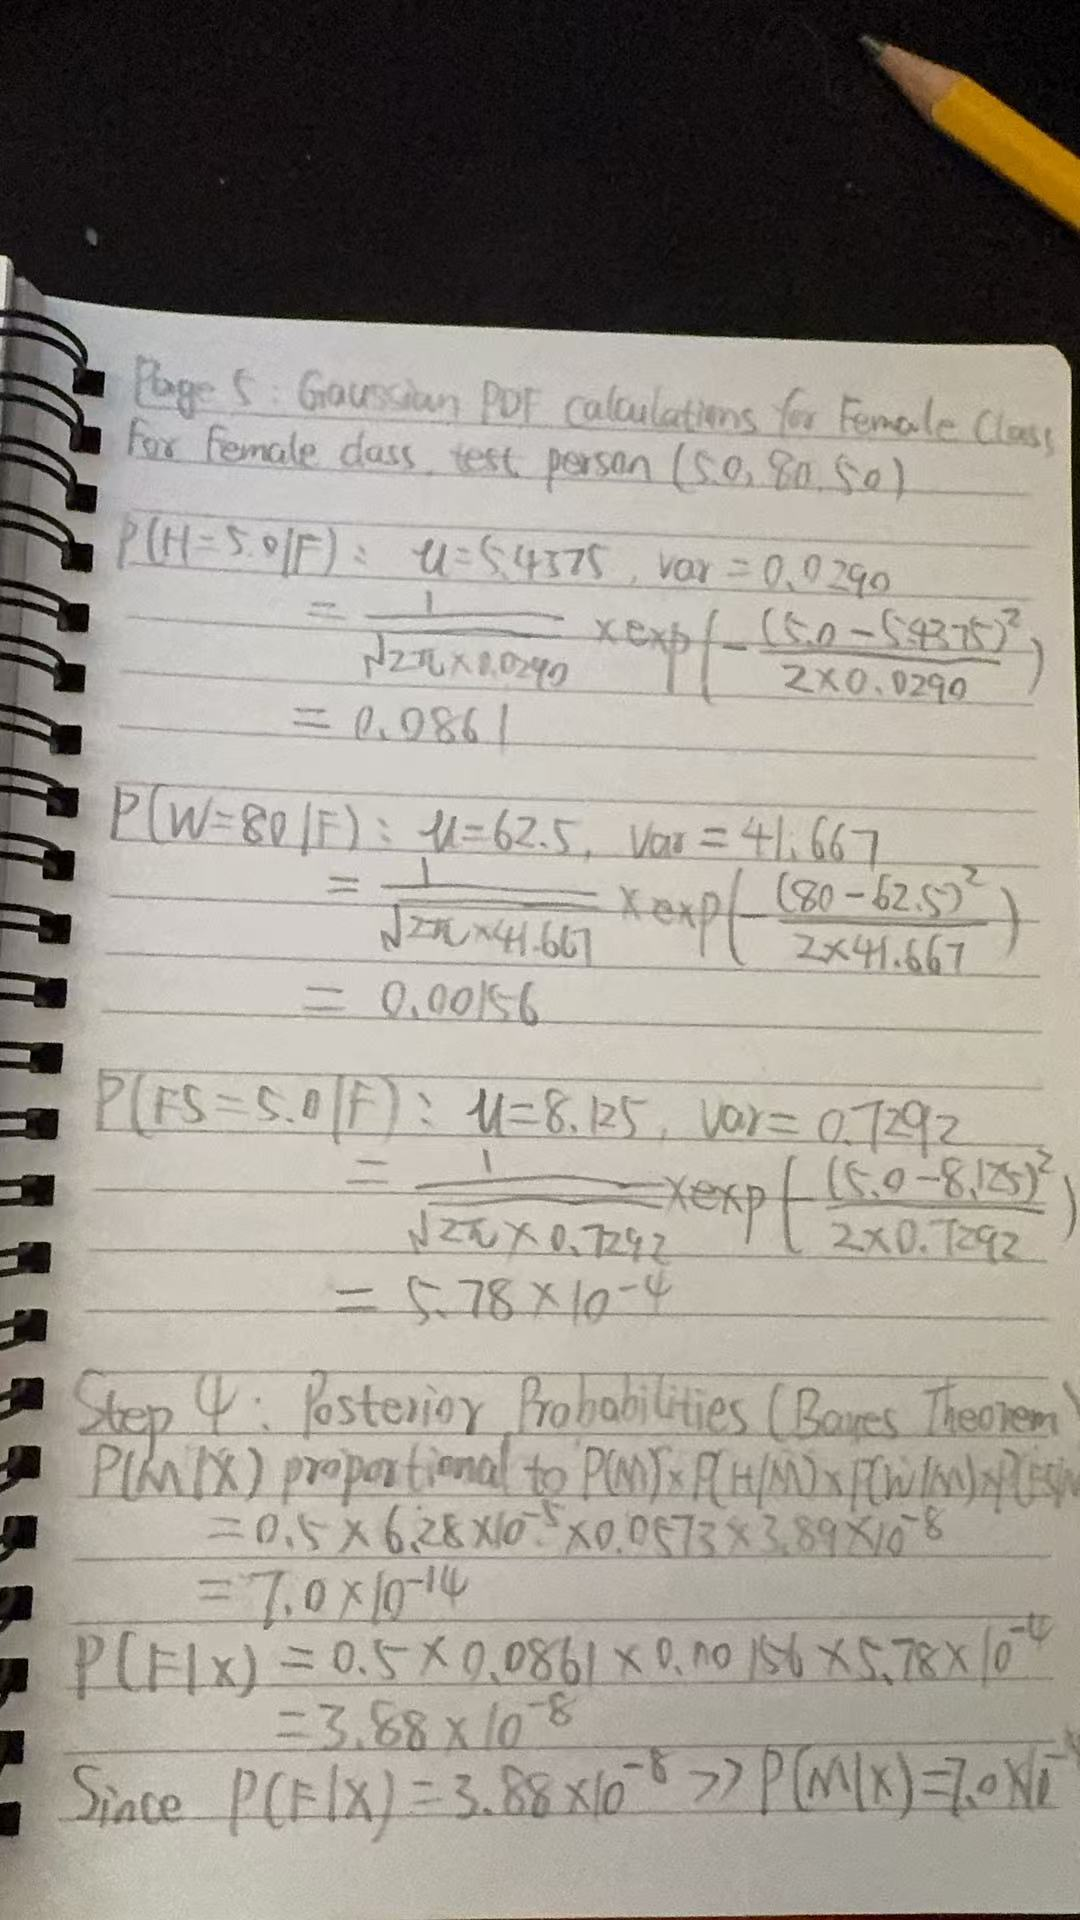 Page 5: Gaussian PDF calculations for Female Class
For Female class, test person (5.0, 80, 5.0)
P(H=5.0|F): μ=5.4375, var=0.0290
= 1/√2π×0.0290 × exp(-(5.0-5.4375)²/2×0.0290)
= 0.0861
P(W=80|F): μ=62.5, Var=41.667
= 1/√2π×41.667 × exp(-(80-62.5)²/2×41.667)
= 0.00156
P(FS=5.0|F): μ=8.125, var=0.7292
= 1/√2π×0.7292 × exp(-(5.0-8.125)²/2×0.7292)
= 5.78×10⁻⁴
Step 4: Posterior Probabilities (Bayes Theorem)
P(M|X) proportional to P(M)×P(H|M)×P(W|M)×P(FS|M
= 0.5×6.28×10⁻⁵×0.0573×3.89×10⁻⁸
= 7.0×10⁻¹⁴
P(F|X) = 0.5×0.0861×0.00156×5.78×10⁻⁴
= 3.88×10⁻⁸
Since P(F|X)=3.88×10⁻⁸ >> P(M|X)=7.0×10⁻